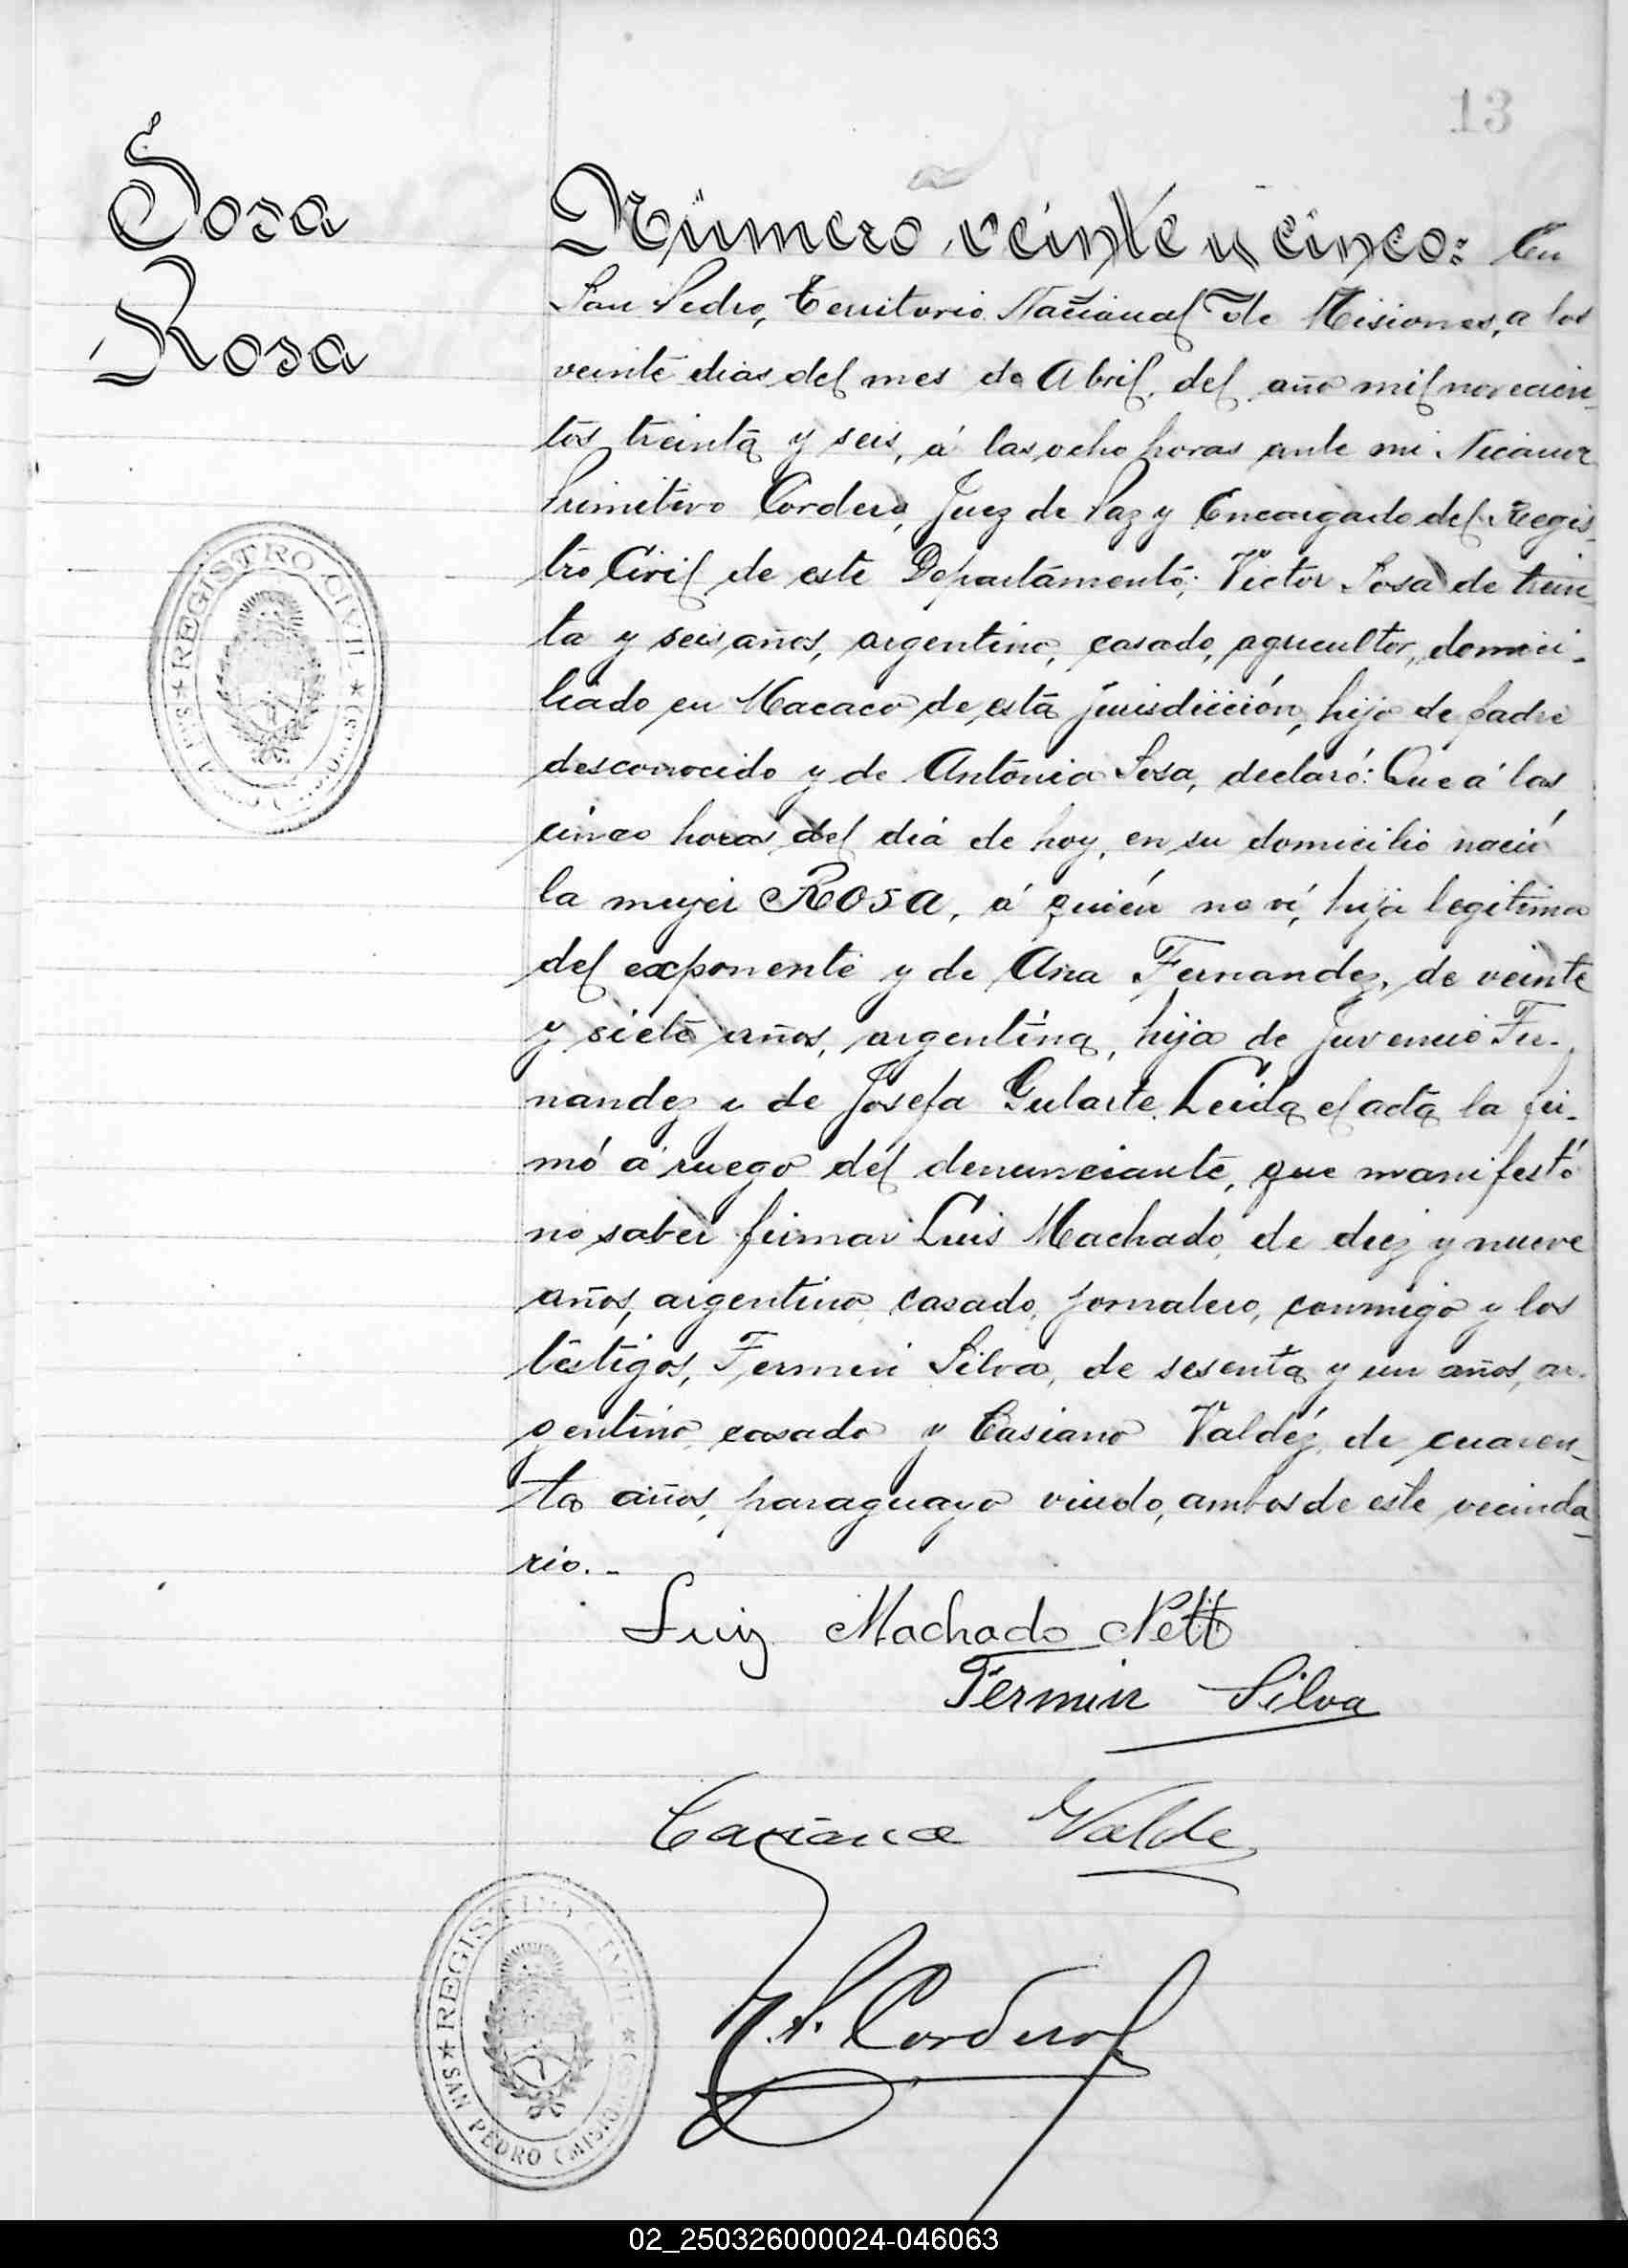 13
Sosa
Rosa
Número veinte y cinco: En
San Pedro, Territorio Nacional de Misiones, a los
veinte dias del mes de Abril, del año mil novecien-
tos treinta y seis, á las ocho horas ante mi Nicanor
Primitivo Cordero, Juez de Paz y Encargado del Regis-
tro Civil de este Departamento; Victor Sosa de trein-
ta y seis años, argentino, casado, agricultor, domici-
liado en Macaco de esta jurisdicción, hijo de padre
desconocido y de Antonia Sosa, declaró: Que á las
cinco horas del dia de hoy, en su domicilio nació
la mujer ROSA, á quién no ví, hija legitima
del exponente y de Ana Fernandez, de veinte
y siete años, argentina, hija de Juvencio Fer-
nandez y de Josefa Gularte. Leida el acta la fir-
mó á ruego del denunciante, que manifestó
no saber firmar Luis Machado, de diez y nueve
años, argentino, casado, jornalero, conmigo y los
testigos, Fermin Silva, de sesenta y un años, ar-
gentino, casado y Casiano Valdéz, de cuaren-
ta años, paraguayo viudo, ambos de este vecinda-
rio.-
Luiz Machado Netto
Fermin Silva
Casiano Valde
N. P. Cordero
REGISTRO CIVIL
REGISTRO CIVIL
SAN PEDRO (MISIO
02_250326000024-046063